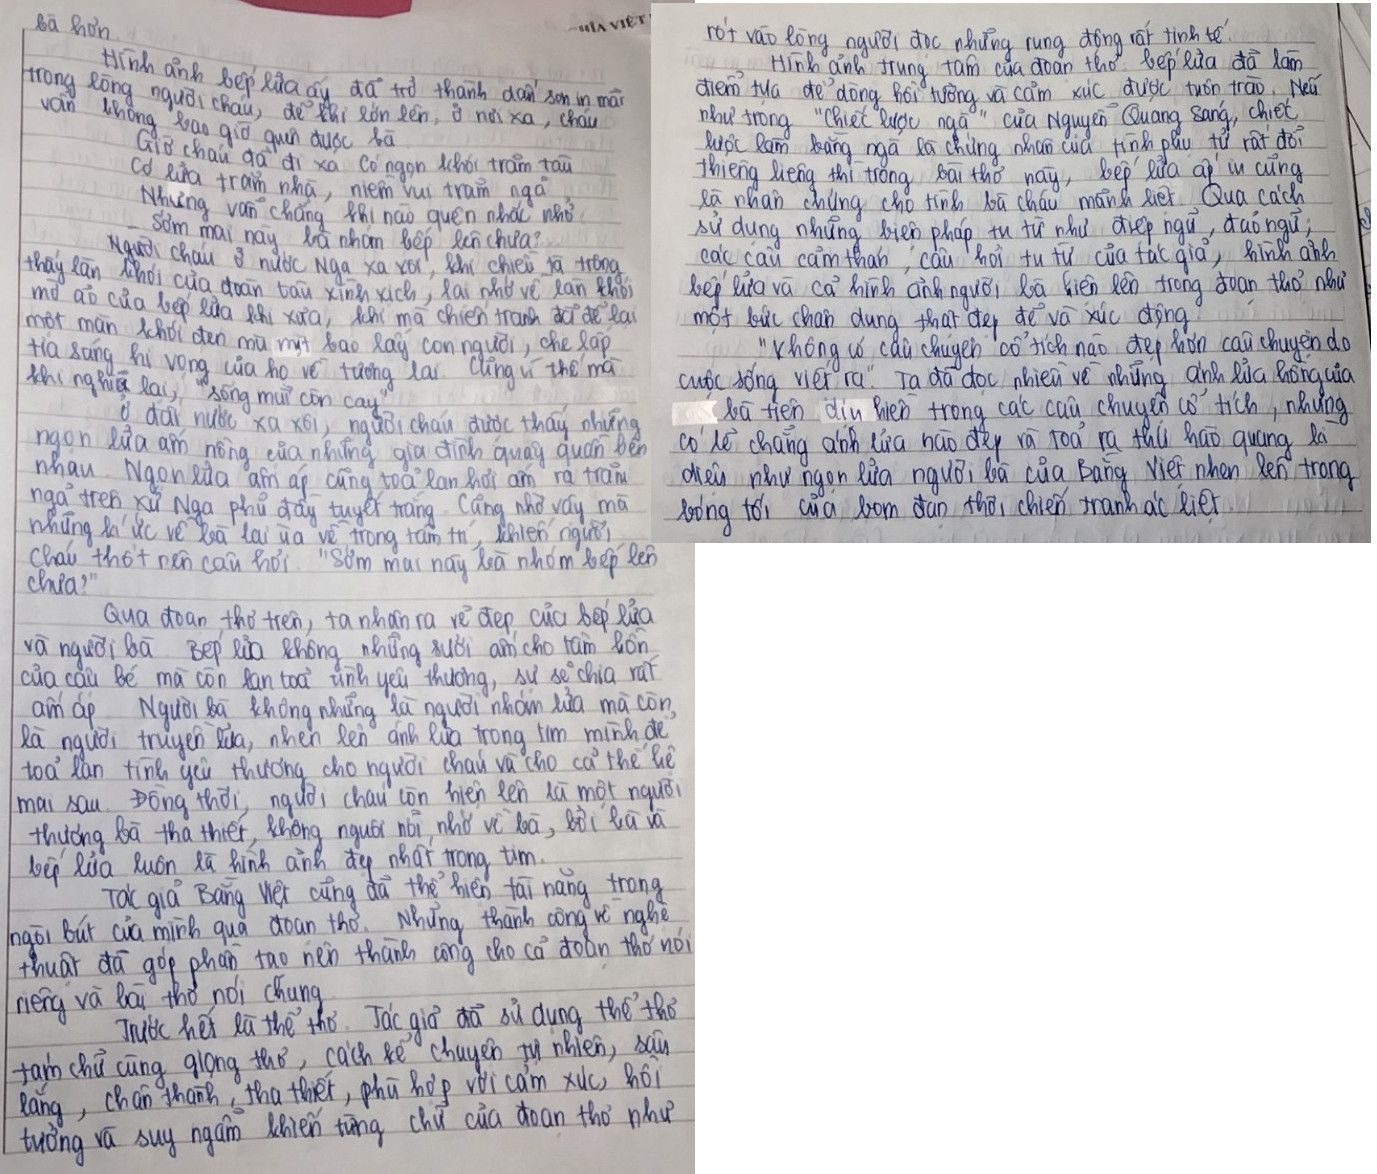 bà hơn.
Hình ảnh bếp lửa ấy đã trở thành dấu son in mãi
trong lòng người cháu, để khi lớn lên, ở nơi xa, cháu
vẫn không bao giờ quên được bà
Giờ cháu đã đi xa. Có ngọn khói trăm tàu
Có lửa trăm nhà, niềm vui trăm ngả
Nhưng vẫn chẳng khi nào quên nhắc nhở
_ Sớm mai này bà nhóm bếp lên chưa?
Người cháu ở nước Nga xa xôi, khi chiều tà trông
thấy làn khói của đoàn tàu xình xịch, lại nhớ về làn khói
mờ ảo của bếp lửa khi xưa, khi mà chiến tranh đã để lại
một màn khói đen mù mịt bao lấy con người, che lấp
tia sáng hi vọng của họ về tương lai. Cũng vì thế mà
khi nghĩ lại, "sống mũi còn cay"
Ở đất nước xa xôi, người cháu được thấy những
ngọn lửa ấm nồng của những gia đình quây quần bên
nhau. Ngọn lửa ấm áp cũng toả lan hơi ấm ra trăm
ngả trên xứ Nga phủ đầy tuyết trắng. Cũng nhờ vậy mà
những kí ức về bà lại ùa về trong tâm trí, khiến người
cháu thốt nên câu hỏi: "Sớm mai này bà nhóm bếp lên
chưa?"
Qua đoạn thơ trên, ta nhận ra vẻ đẹp của bếp lửa
và người bà. Bếp lửa không những sưởi ấm cho tâm hồn
của cậu bé mà còn lan toả tình yêu thương, sự sẻ chia rất
ấm áp. Người bà không những là người nhóm lửa mà còn
là người truyền lửa, nhen lên ánh lửa trong tim mình để
toả lan tình yêu thương cho người cháu và cho cả thế hệ
mai sau. Đồng thời, người cháu còn hiện lên là một người
thương bà tha thiết, không nguôi nỗi nhớ về bà, bởi bà và
bếp lửa luôn là hình ảnh đẹp nhất trong tim.
Tác giả Bằng Việt cũng đã thể hiện tài năng trong
ngòi bút của mình qua đoạn thơ. Những thành công về nghệ
thuật đã góp phần tạo nên thành công cho cả đoạn thơ nói
riêng và bài thơ nói chung
Trước hết là thể thơ. Tác giả đã sử dụng thể thơ
tám chữ cùng giọng thơ, cách kể chuyện tự nhiên, sâu
lắng, chân thành, tha thiết, phù hợp với cảm xúc, hồi
tưởng và suy ngẫm khiến từng chữ của đoạn thơ như
rót vào lòng người đọc những rung động rất tinh tế.
Hình ảnh trung tâm của đoạn thơ bếp lửa đã làm
điểm tựa để dòng hồi tưởng và cảm xúc được tuôn trào. Nếu
như trong "Chiếc lược ngà" của Nguyễn Quang Sáng, chiếc
lược làm bằng ngà là chứng nhân của tình phụ tử rất đỗi
thiêng liêng thì trong bài thơ này, bếp lửa ấp iu cũng
là nhân chứng cho tình bà cháu mãnh liệt. Qua cách
sử dụng những biện pháp tu từ như điệp ngữ, đảo ngữ;
các câu cảm thán, câu hỏi tu từ của tác giả, hình ảnh
bếp lửa và cả hình ảnh người bà hiện lên trong đoạn thơ như
một bức chân dung thật đẹp đẽ và xúc động.
"Không có câu chuyện cổ tích nào đẹp hơn câu chuyện do
cuộc sống viết ra". Ta đã đọc nhiều về những ánh lửa hồng của
bà tiên dịu hiền trong các câu chuyện cổ tích, nhưng
có lẽ chẳng ánh lửa nào đẹp và toả ra thứ hào quang kì
diệu như ngọn lửa người bà của Bằng Việt nhen lên trong
bóng tối của bom đạn thời chiến tranh ác liệt.